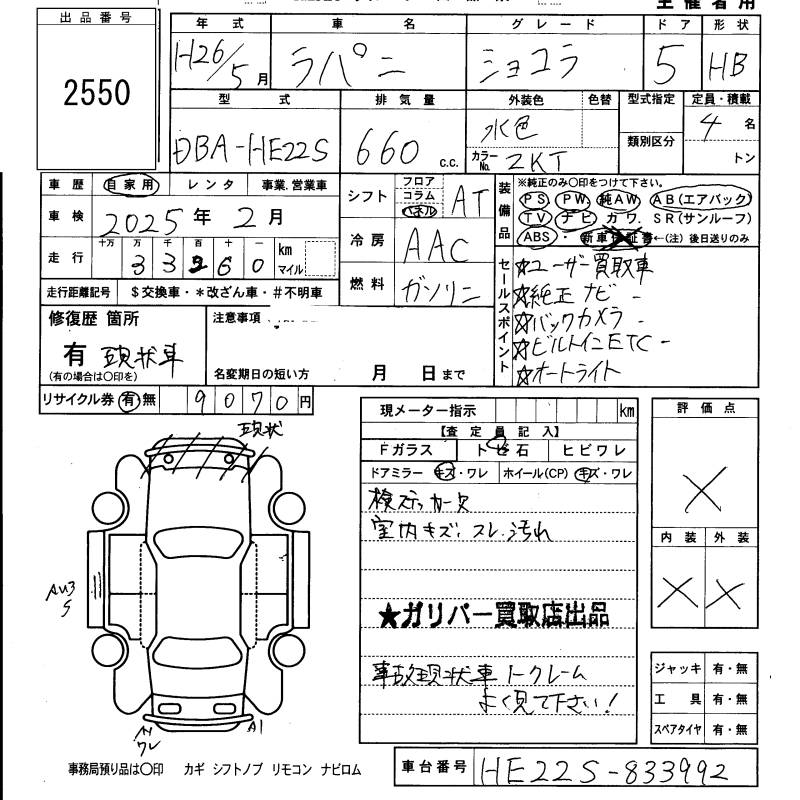 出品番号
2550
年式 車名 グレード ドア 形状
H26/5月 ラパン ショコラ 5 HB
型式 排気量 外装色 色替 型式指定 定員・積載
DBA-HE22S 660 c.c. 水色 類別区分 4名
カラーNo. ZKT トン
車歴 自家用 レンタ 事業.営業車
車検 2025年 2月
走行 十万 万 千 百 十 一 km マイル
3 3 2 6 0
走行距離記号 $交換車・*改ざん車・#不明車
シフト フロア コラム パネル AT
冷房 AAC
燃料 ガソリン
装備品 ※純正のみ〇印をつけて下さい。
PS PW 純AW AB(エアバック)
TV ナビ カワ. SR(サンルーフ)
ABS・新車保証書←(注) 後日送りのみ
セールスポイント
☆ユーザー買取車
☆純正ナビ -
☆バックカメラ -
☆ビルトインETC -
☆オートライト
修復歴 箇所
有 現状車
(有の場合は〇印を)
注意事項
名変期日の短い方 月 日まで
リサイクル券 有 無 9070円
現メーター指示 km
【査定員記入】
Fガラス トビ石 ヒビワレ
ドアミラー キズ・ワレ ホイール(CP) キズ・ワレ
検ステッカー欠
室内キズ.スレ.汚れ
★ガリバー買取店出品
事故現状車 ノークレーム
よく見て下さい!
評価点
×
内装 外装
× ×
ジャッキ 有・無
工具 有・無
スペアタイヤ 有・無
現状
AU3
S
ワレ
A1
事務局預り品は〇印 カギ シフトノブ リモコン ナビロム
車台番号 HE22S-833992